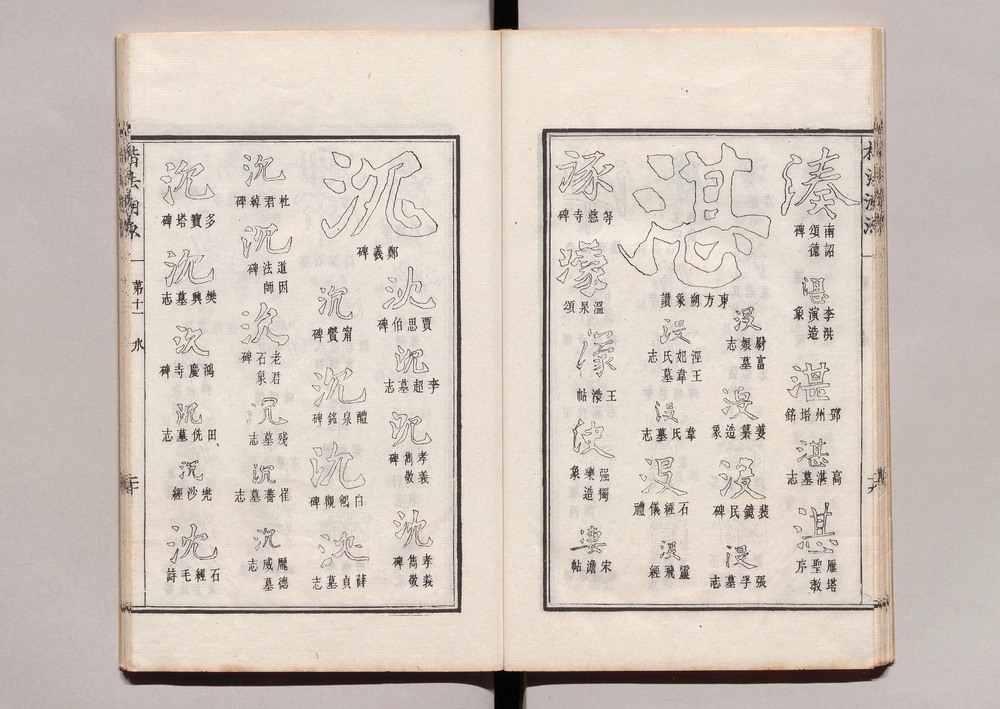 湊
南詔德頌碑
湛
李洪演造象
湛
鄧州塔銘
湛
高湛墓志
湛
雁塔聖教序
湛
東方朔象讚
沒
尉富娘墓志
沒
姜纂造象
沒
裴鏡民碑
沒
張孚墓志
沒
涇王妃韋氏墓志
沒
韋氏墓志
沒
石經儀禮
沒
靈飛經
等慈寺碑
濛
溫泉頌
濛
王濛帖
强獨樂造象
宋儋帖
沉
鄭羲碑
沈
賈思伯碑
沉
李超墓志
沉
孝義雋敬碑
沈
孝義雋敬碑
沉
甯贙碑
沉
醴泉銘
沉
白鶴觀碑
沈
薛貞墓志
沉
杜君綽碑
沉
道因法師碑
沉
老君石象碑
沉
殘墓志
沉
崔蕃墓志
沉
龐德威墓志
沉
多寶塔碑
沉
樊興墓志
沉
鴻慶寺碑
沉
田侁墓志
沉
兜沙經
沈
石經毛詩
楷法溯源
第十一
水